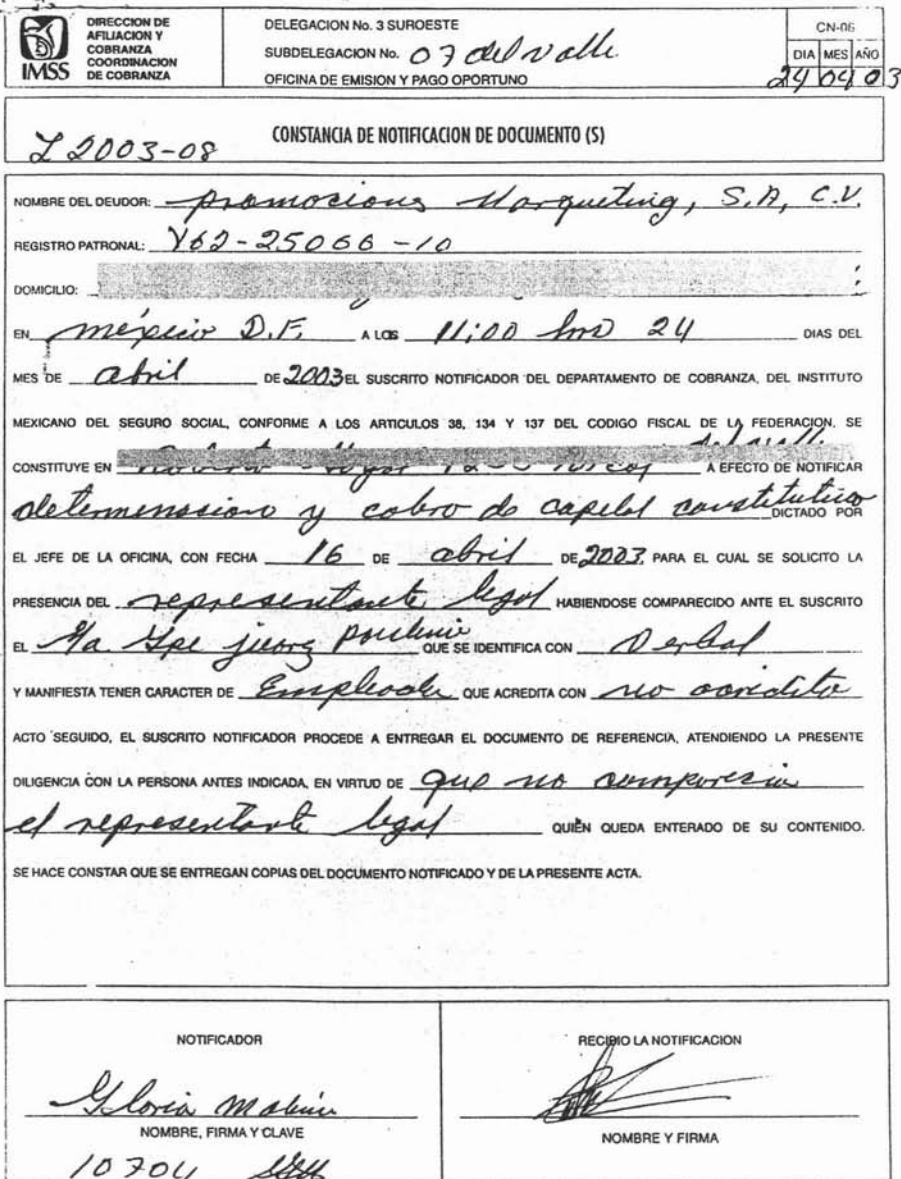 IMSS
DIRECCION DE
AFILIACION Y
COBRANZA
COORDINACION
DE COBRANZA
DELEGACION No. 3 SUROESTE
SUBDELEGACION No. 07 del valle
OFICINA DE EMISION Y PAGO OPORTUNO
CN-06
DIA MES AÑO
24 04 03
2003-08 CONSTANCIA DE NOTIFICACION DE DOCUMENTO (S)
NOMBRE DEL DEUDOR: promocions Marqueting, S.A, C.V.
REGISTRO PATRONAL: Y62-25066-10
DOMICILIO:
EN méxico D.F. A LOS 11:00 hrs 24 DIAS DEL
MES DE abril DE 2003 EL SUSCRITO NOTIFICADOR DEL DEPARTAMENTO DE COBRANZA, DEL INSTITUTO
MEXICANO DEL SEGURO SOCIAL, CONFORME A LOS ARTICULOS 38, 134 Y 137 DEL CODIGO FISCAL DE LA FEDERACION, SE
CONSTITUYE EN A EFECTO DE NOTIFICAR
determinacion y cobro de capital constitutivo DICTADO POR
EL JEFE DE LA OFICINA, CON FECHA 16 DE abril DE 2003, PARA EL CUAL SE SOLICITO LA
PRESENCIA DEL representante legal HABIENDOSE COMPARECIDO ANTE EL SUSCRITO
EL Ma Gpe QUE SE IDENTIFICA CON Verbal
Y MANIFIESTA TENER CARACTER DE Empleada QUE ACREDITA CON no acredita
ACTO SEGUIDO, EL SUSCRITO NOTIFICADOR PROCEDE A ENTREGAR EL DOCUMENTO DE REFERENCIA, ATENDIENDO LA PRESENTE
DILIGENCIA CON LA PERSONA ANTES INDICADA, EN VIRTUD DE que no comparecia
el representante legal QUIEN QUEDA ENTERADO DE SU CONTENIDO.
SE HACE CONSTAR QUE SE ENTREGAN COPIAS DEL DOCUMENTO NOTIFICADO Y DE LA PRESENTE ACTA.
NOTIFICADOR
Gloria Molina
NOMBRE, FIRMA Y CLAVE
10704
RECIBIO LA NOTIFICACION
NOMBRE Y FIRMA